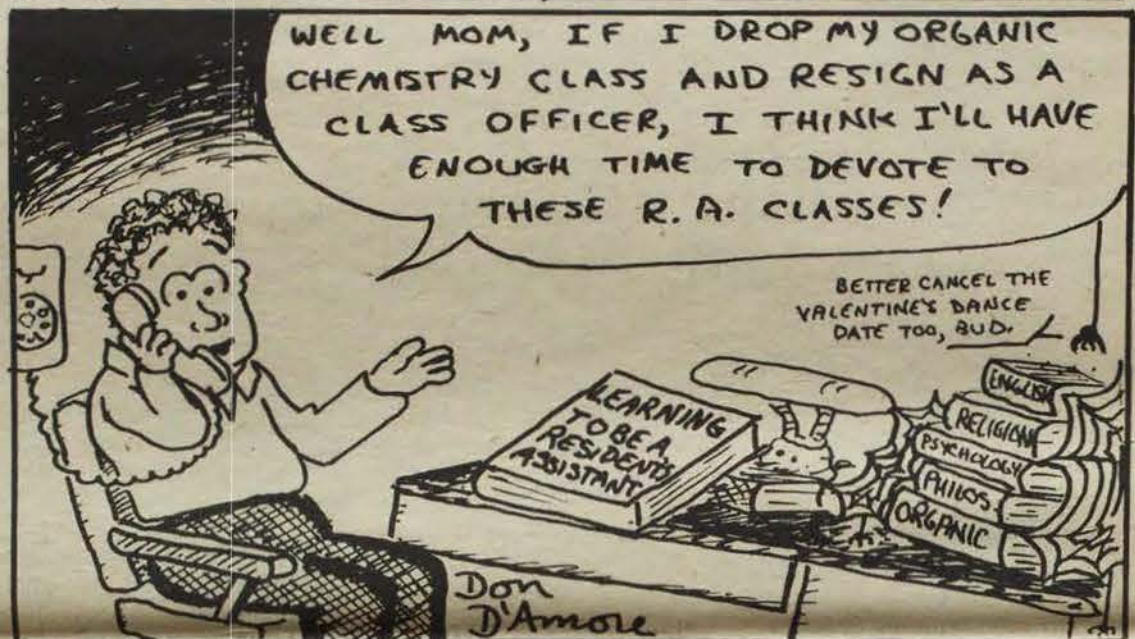 WELL MOM, IF I DROP MY ORGANIC
CHEMISTRY CLASS AND RESIGN AS A
CLASS OFFICER, I THINK I'LL HAVE
ENOUGH TIME TO DEVOTE TO
THESE R.A. CLASSES!
BETTER CANCEL THE
VALENTINE'S DANCE
DATE TOO, BUD.
LEARNING
TO BE A
RESIDENTS
ASSISTANT
ENGLISH
RELIGION
PSYCHOLOGY
PHILOS
ORGANIC
Don
D'Amore